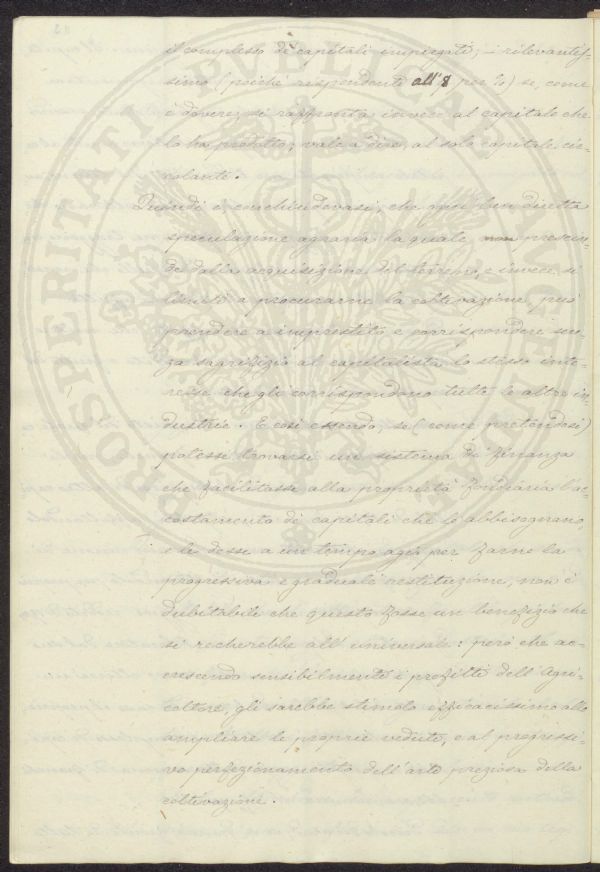 il complesso di capitali impiegati; è rilevantis-
simo (poiché rispondenti all'8 per %) se, come
è dovere, si raffronta invece al capitale che
lo ha prodotto, vale a dire, al solo capitale cir-
colante.
Quindi è conchiudevasi, che ogni ben diretta
speculazione agraria la quale, non prescin-
de dalla acquisizione del terreno, e invece si
limiti a procurarne la coltivazione, può
prendere a imprestito e corrispondere sen-
za sagrifizio al capitalista lo stesso inte-
resse che gli corrispondono tutte le altre in-
dustrie. E così essendo, se (come pretendesi)
potesse trovarsi un sistema di finanza
che facilitasse alla proprietà fondiaria l'ac-
costamento di capitali che le abbisognano,
e le desse a un tempo agio per farne la
progressiva e graduale restituzione, non è
dubitabile che questo fosse un benefizio che
si recherebbe all'universale: però che ac-
crescendo sensibilmente i profitti dell'Agri-
coltore, gli sarebbe stimolo efficacissimo alle
ampliare le proprie vedute, e al progressi-
vo perfezionamento dell'arte preziosa della
coltivazione.
PROSPERITATI PUBLICAE AUGENDAE